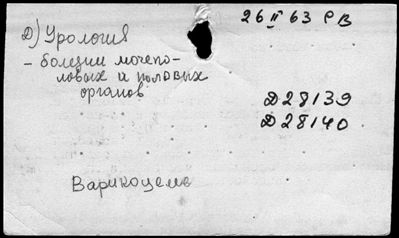 26 II 63 РВ
Д) Урология
- болезни мочепо-
ловых и половых
органов
Д28139
Д28140
Варикоцеле